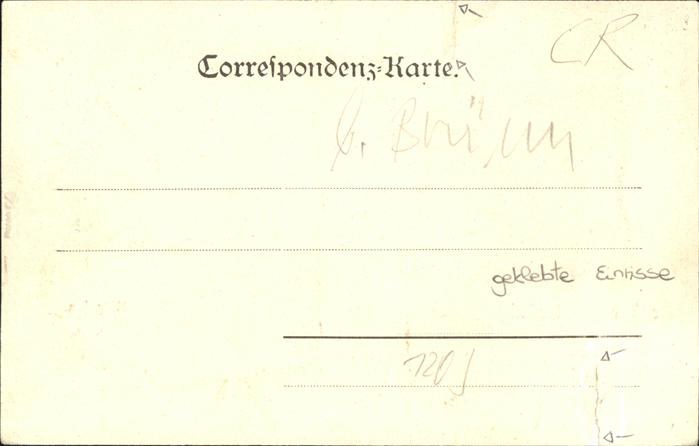 CR
Correspondenz-Karte.
b. Brüx
geklebte Einrisse
120